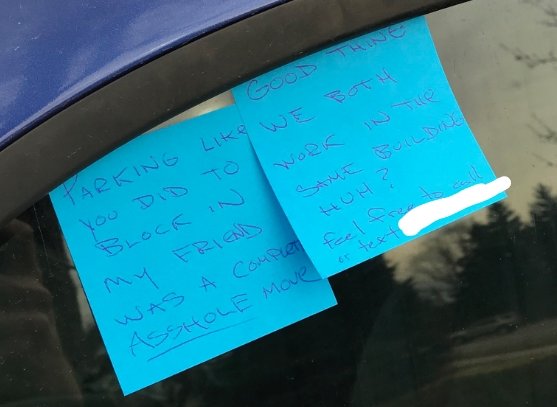 PARKING LIKE
YOU DID TO
BLOCK IN
MY FRIEND
WAS A COMPLETE
ASSHOLE MOVE
GOOD THING
WE BOTH
WORK IN THE
SAME BUILDING
HUH?
feel free to call
or text